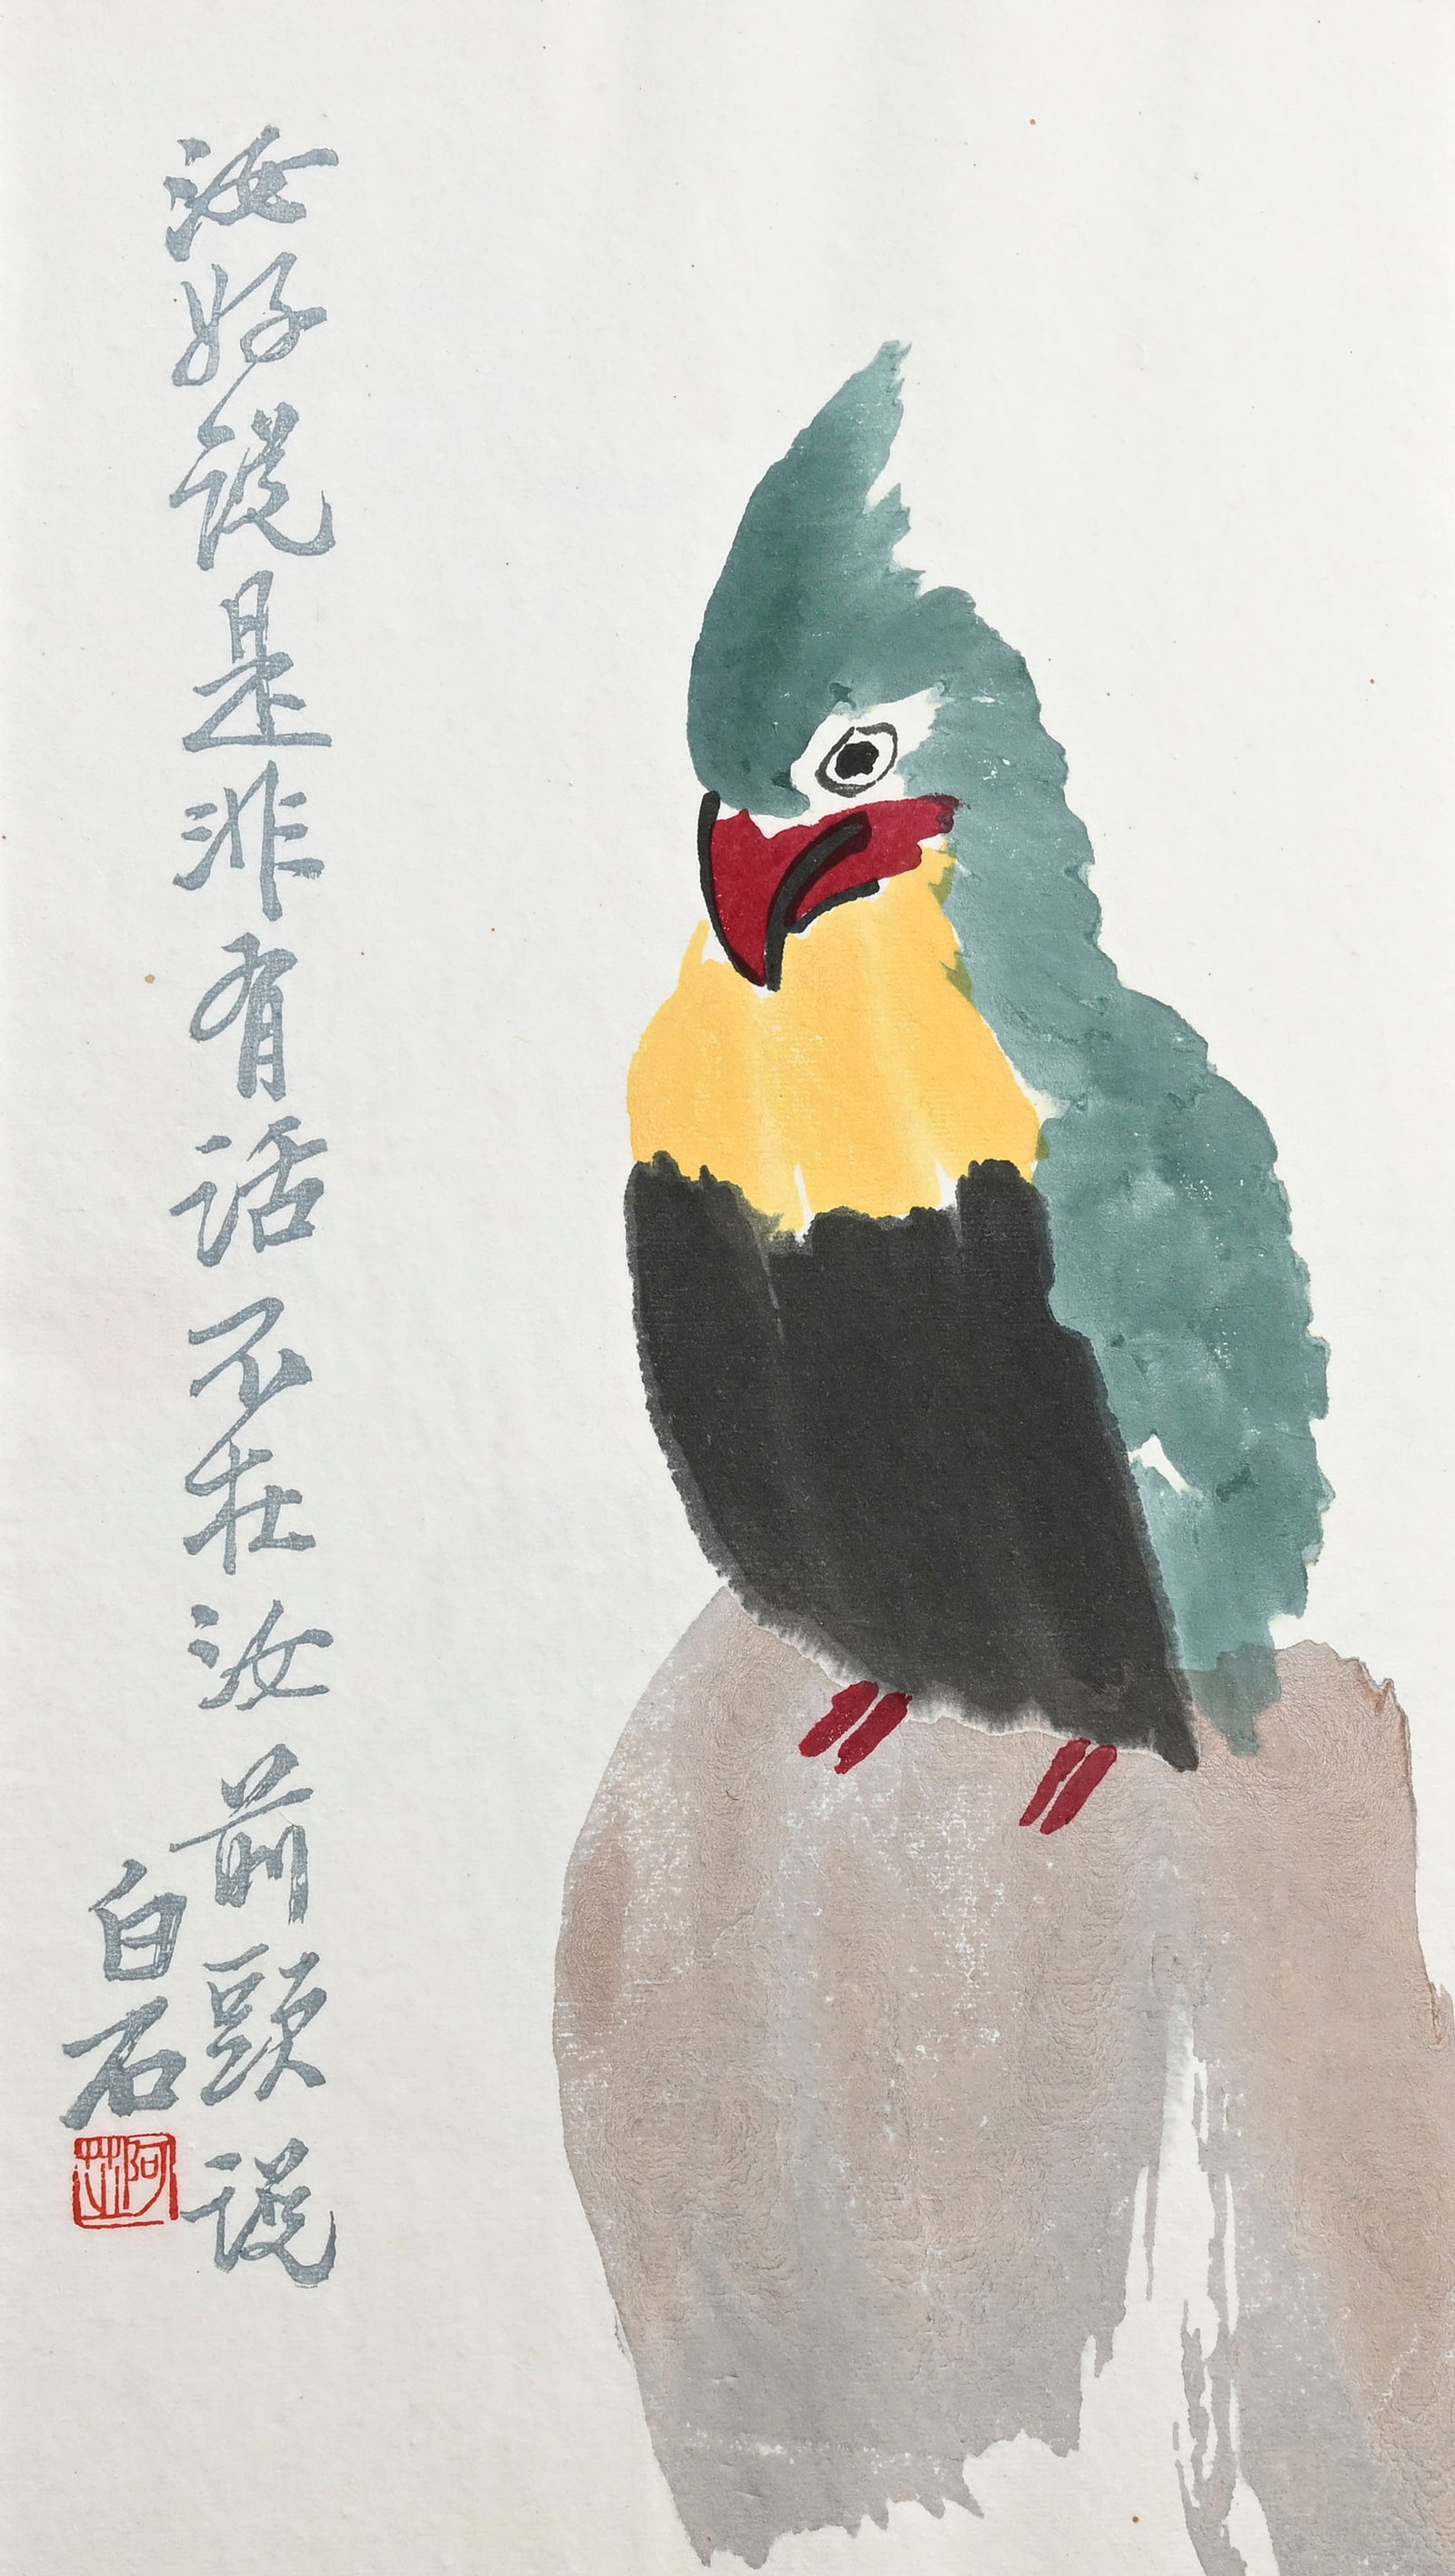 汝好説是非有話不在汝前頭説
白石
阿芝